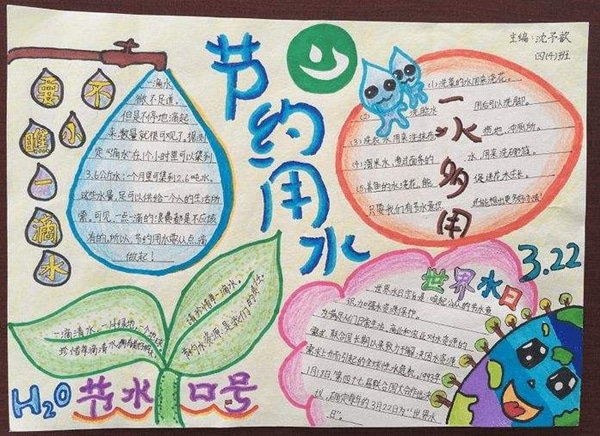 主编:沈予歆
四(4)班
节约用水
不小一滴水
一滴水,
微不足道,
但是不停地滴起
来,数量就很可观了,据测
定“滴水”在1个小时里可以集到
3.6公斤水;1个月里可集到2.6吨水,
这些水量,足可以供给一个人的生活所
需,可见,一点一滴的浪费都是不应该
有的,所以,节约用水要从点滴
做起!
一水多用
(1)洗菜的水用来浇花。
用后可以洗脚。
(3)洗衣水用来洗抹布、
拖地、冲厕所。
(4)淘米水、煮过面条的
水,用来洗碗筷。
(5)养鱼的水浇花,能
促进花木生长。
只要我们有节水意识,
世界水日
3.22
世界水日宗旨是唤起公众的节水意
识,加强水资源保护。
为满足人们日常生活、商业和农业对水资源的
需求,联合国长期以来致力于解决因水资源
需求上升而引起的全球性水危机。1993年
1月18日,第四十七届联合国大会作出决
议,确定每年的3月22日为“世界水
日”。
一滴清水,一片绿地,一个地球
珍惜每滴清水,
请珍惜每一滴水。
节约水资源,是我们的责任。
H2O
节水口号